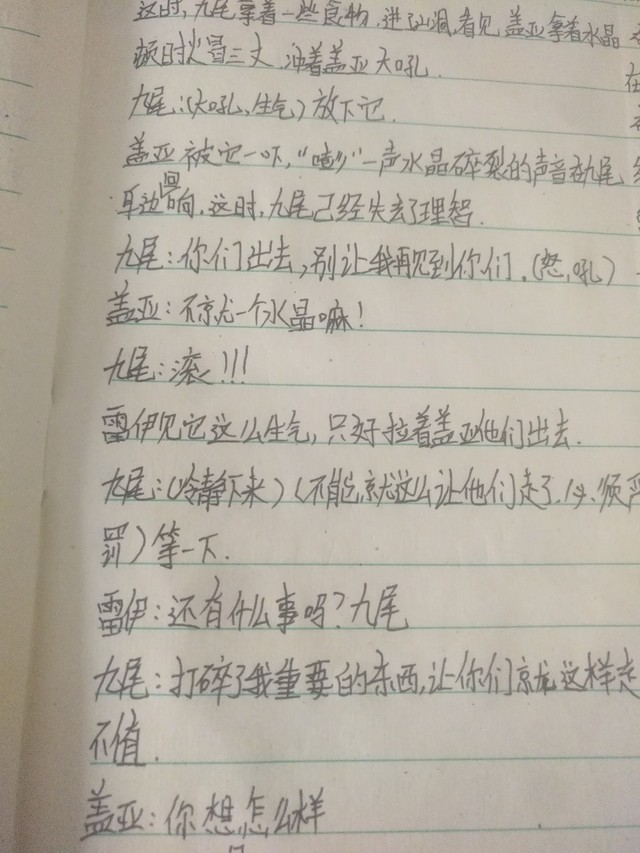 这时,九尾拿着一些食物,进了山洞,看见,盖亚拿着水晶
顿时火冒三丈,冲着盖亚大吼.
九尾:(大吼,生气)放下它.
盖亚被它一吓,"喳"一声水晶碎裂的声音在九尾
耳边回响,这时,九尾已经失去了理智.
九尾:你们出去,别让我再见到你们.(怒,吼)
盖亚:不就一个水晶嘛!
九尾:滚!!!
雷伊见它这么生气,只好拉着盖亚他们出去.
九尾:(冷静下来)(不能就这么让他们走了,必须严
罚)等一下.
雷伊:还有什么事吗?九尾
九尾:打碎了我重要的东西,让你们就这样走
不值.
盖亚:你想怎么样